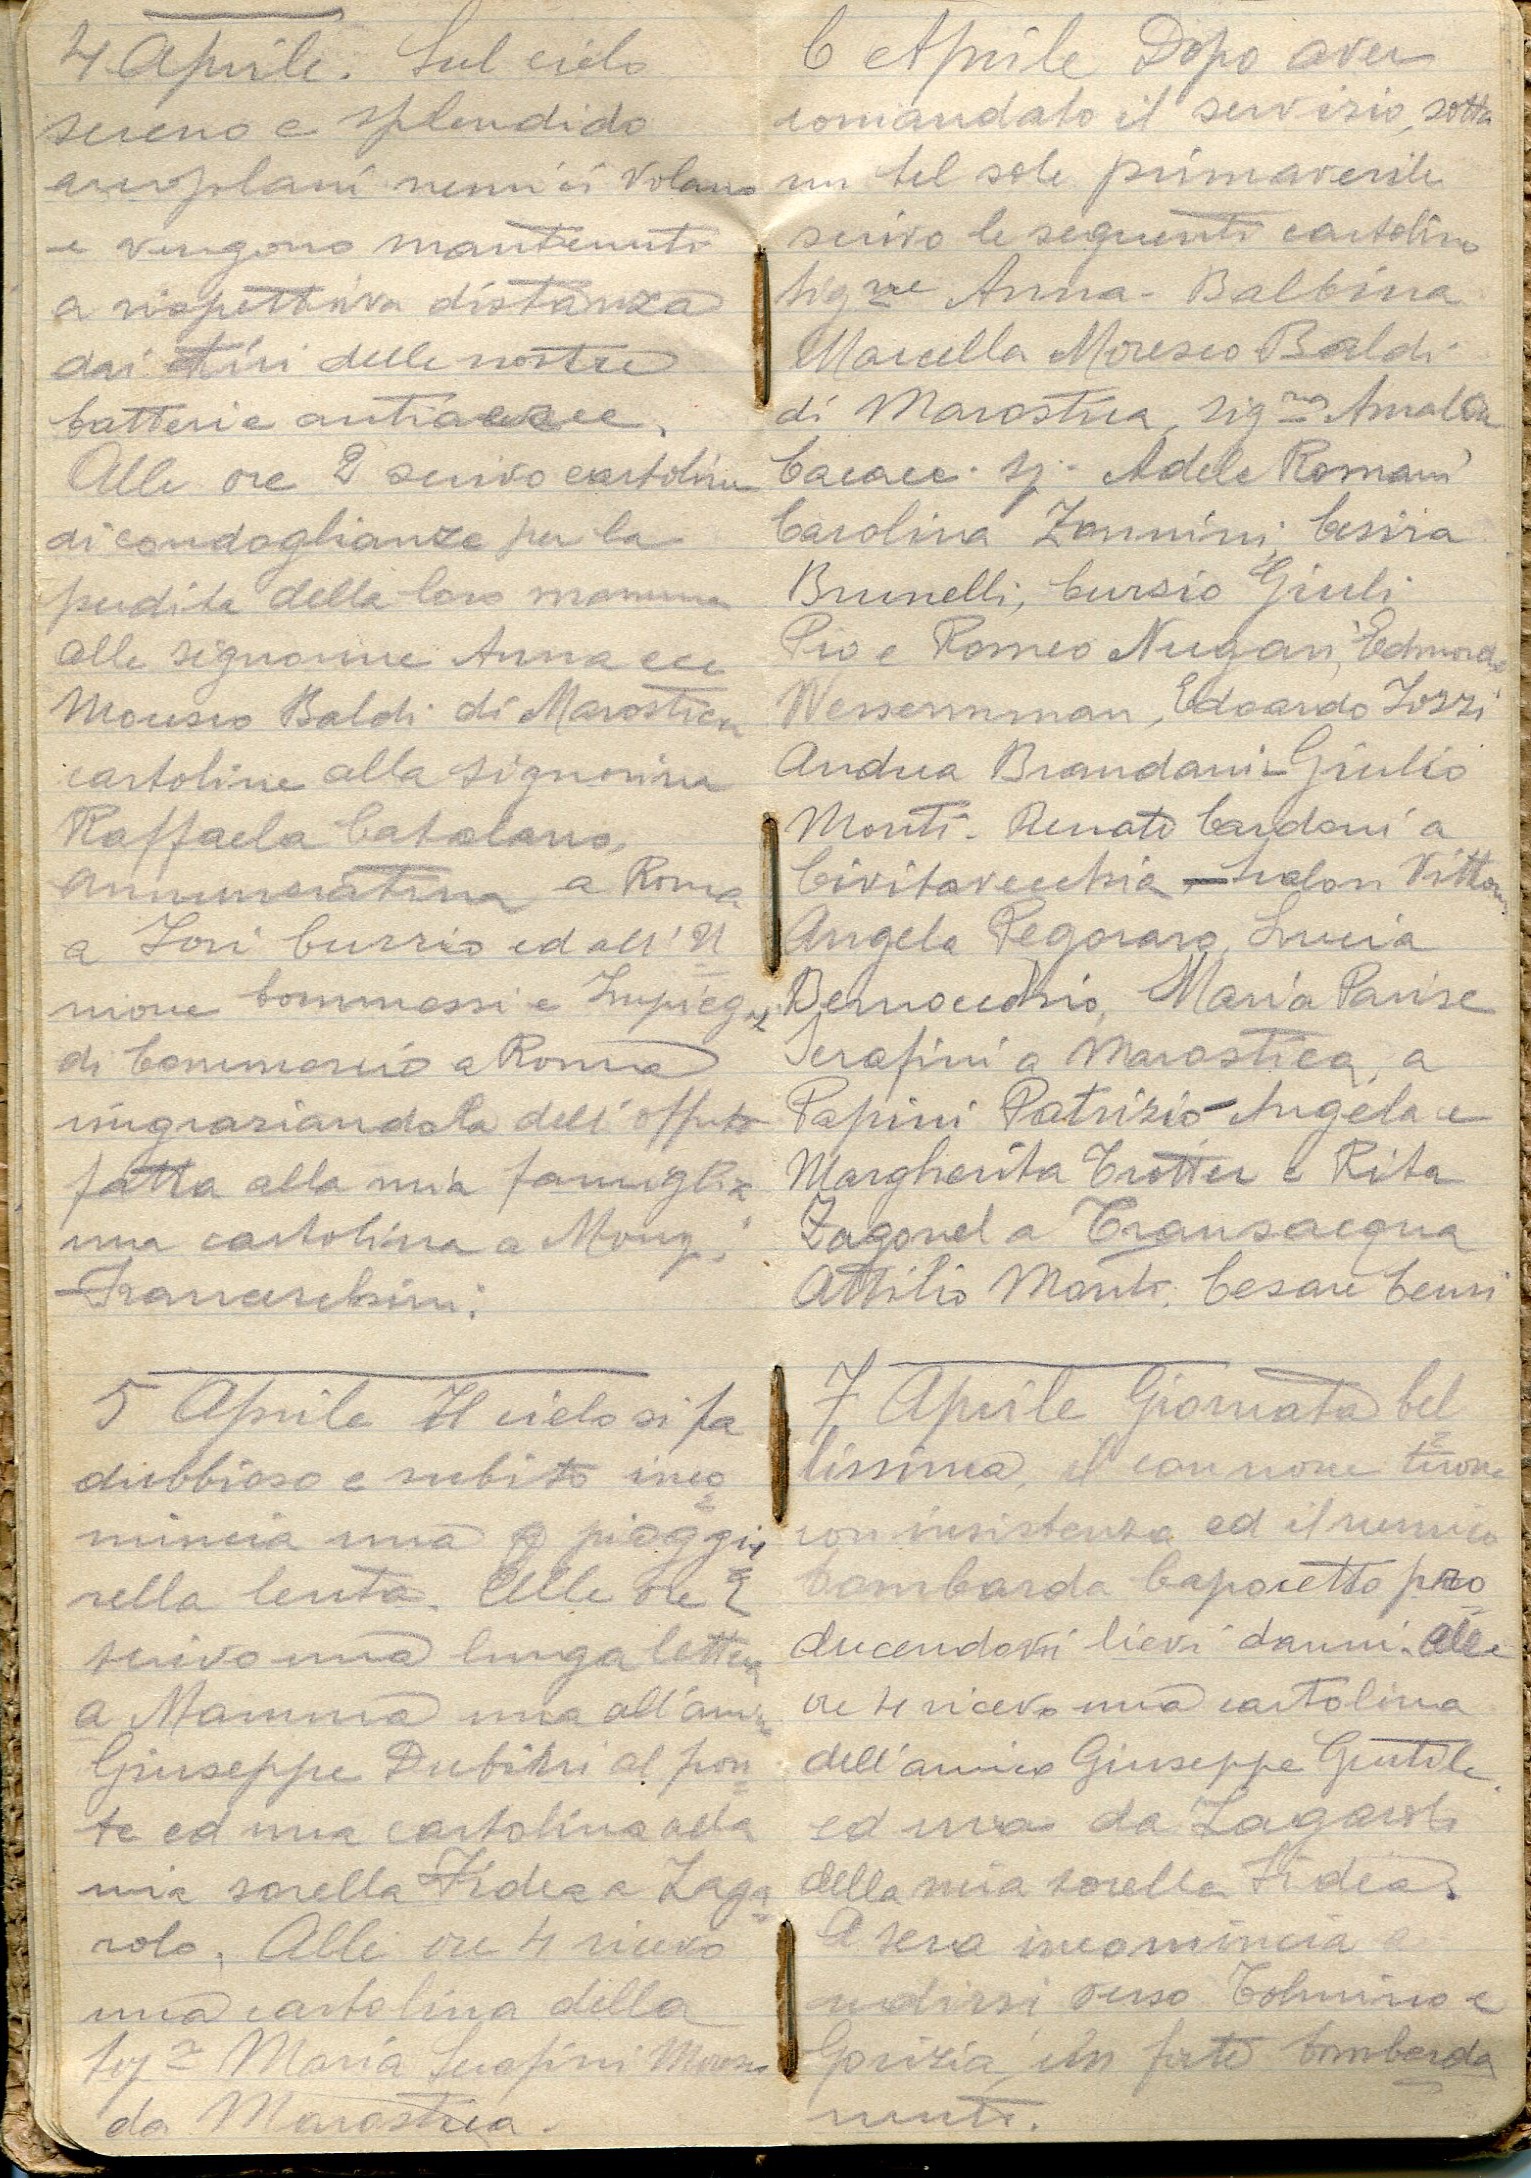 4 Aprile. Sul cielo
sereno e splendido
areoplani nemici volano
e vengono mantenuti
a rispettiva distanza
dai tiri delle nostre
batterie antiaeree.
Alle ore 2 scrivo cartoline
di condoglianze per la
perdita della loro mamma
alle signorine Anna ecc
Moresco Baldi di Marostica
cartoline alla signorina
Raffaela Catalano,
annunciatrina a Roma
a Curzio ed all'U
nione Commessi e Impieg
di Commercio a Roma
ringraziandola dell'offerta
fatta alla mia famiglia
una cartolina a Mong.
Franceschini.
5 Aprile Il cielo si fa
dubbioso e subito inco
mincia una pioggie
rella lenta. Alle ore 2
scrivo una lunga lettera
a Mamma una all'amico
Giuseppe Dubitri al fron
te ed una cartolina alla
mia sorella Fidea a Zaga
rolo. Alle ore 4 ricevo
una cartolina della
Sig.a Maria Serafini Moresco
da Marostica.
6 Aprile Dopo aver
comandato il servizio, sotto
un bel sole primaverile
scrivo le seguenti cartoline
Sig.rre Anna - Balbina
Marcella Moresco Baldi
di Marostica, sig.na Amalia
Cacace. Adele Romani
Carolina Zannini, Cesira
Brunelli, Curzio Giuli
Pio e Romeo Nugari, Edmondo
Edoardo Tozzi
Andrea Brandani - Giulio
Monti - Renato Cardoni a
Civitavecchia - Vittorio
Angela Pegoraro, Lucia
Bernocchio, Maria Parise
Serafini a Marostica, a
Papini Patrizio - Angela e
Margherita Trotter e Rita
Zagonel a Transacqua
Attilio Monti, Cesare Censi
7 Aprile Giornata bel
lissima, il cannone tuona
con insistenza ed il nemico
bombarda Caporetto pro
ducendovi lievi danni. Alle
ore 4 ricevo una cartolina
dell'amico Giuseppe Gentile
ed una da Zagarolo
della mia sorella Fidea.
A sera incomincia a
udirsi verso Tolmino e
Gorizia un forte bombarda
mento.